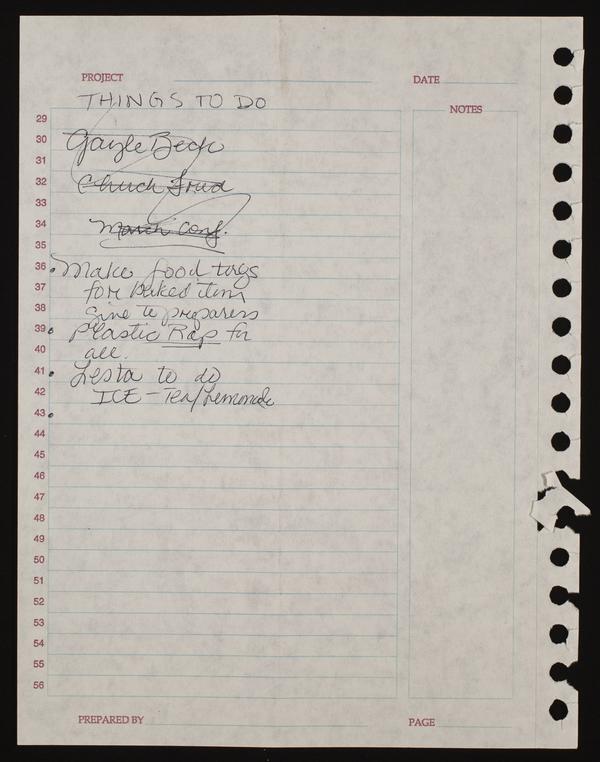 PROJECT
DATE
THINGS TO DO
NOTES
29
30 Gayle Beck
31
32 Chuck Fried
33
34 March Conf.
35
36 • Make food tags
37 for baked items
38 give to preparers
39 • Plastic Rap for
40 all.
41 • Lesta to do
42 ICE - Tea/Lemonade
43 •
44
45
46
47
48
49
50
51
52
53
54
55
56
PREPARED BY
PAGE